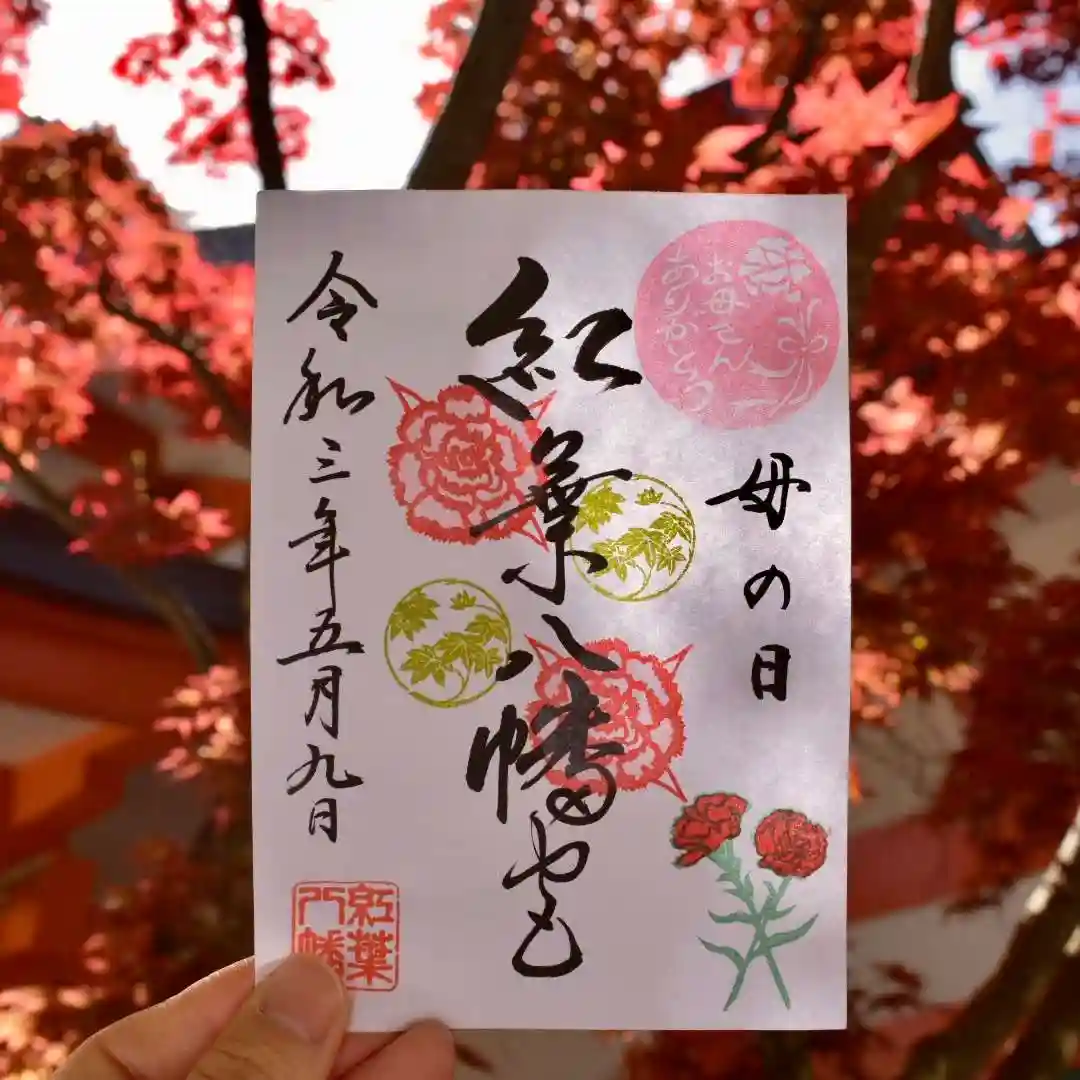 お母さん
ありがとう
母の日
紅葉八幡宮
令和三年五月九日
紅葉
八幡